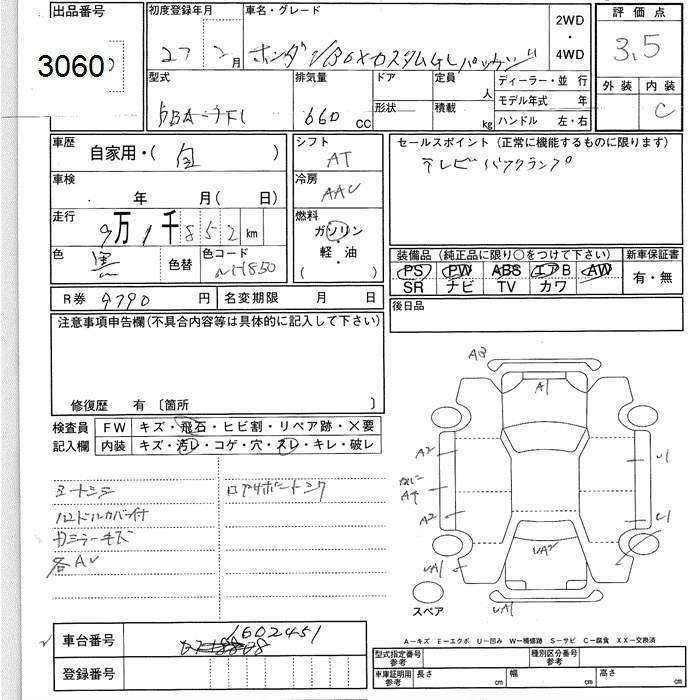 出品番号
3060
初度登録年月
27年2月
車名・グレード
ホンダ N BOXカスタムGLパッケージ
2WD
・
4WD
評価点
3.5
外装 内装
C
型式
DBA-JF1
排気量
660 cc
ドア
形状
定員 人
積載 kg
ディーラー・並 行
モデル年式 年
ハンドル 左・右
車歴
自家用・( 自 )
シフト
AT
セールスポイント (正常に機能するものに限ります)
テレビ バックカンプ
車検
年 月( 日)
冷房
AAC
走行
9万1千852km
燃料
ガソリン
・
軽・油
( )
色
黒
色替
色コード
NH850
装備品 (純正品に限り○をつけて下さい)
新車保証書
PS PW ABS エアB AW
SR ナビ TV カワ
有・無
R券 9790円
名変期限 月 日
後日品
注意事項申告欄(不具合内容等は具体的に記入して下さい)
修復歴 有 〔箇所 〕
検査員
記入欄
FW キズ・飛石・ヒビ割・リペア跡・×要
内装 キズ・汚レ・コゲ・穴・スレ・キレ・破レ
各AU
A1
A2
A2
U1
U1
UA2
UA1
UA1
スペア
A-キズ E-エクボ U-凹み W-補修跡 S-サビ C-腐食 XX-交換済
車台番号
1602451
登録番号
型式指定番号
参考
種別区分番号
参考
車庫証明用
参考
長さ cm
幅 cm
高さ cm